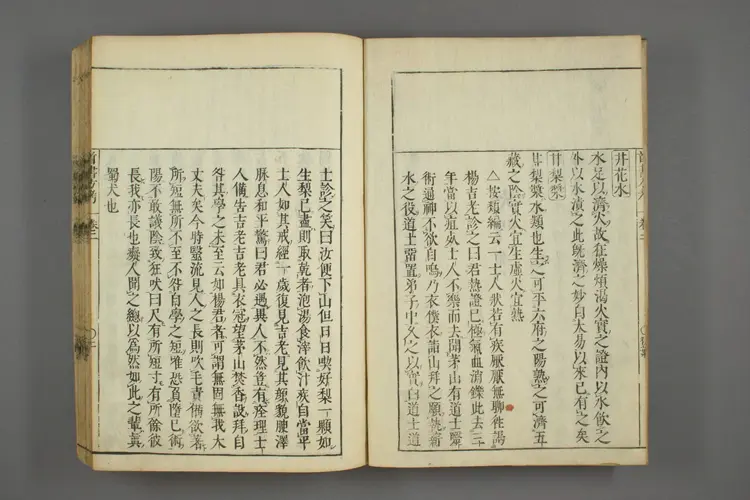 井花水
水足以濟火故狂燥煩渴火實之證內以水飲之
外以水漬之此既濟之妙自太易以來已有之矣
甘梨漿
甘梨漿水類也生之可平六府之陽熟之可濟五
藏之陰實火宜生虛火宜熟
△按類編云一士人狀若有疾厭厭無聊往謁
楊吉老診之曰君熱證已極氣血消鑠此去三
年當以疽死士人不樂而去聞茅山有道士醫
術通神不欲自鳴乃衣僕衣詣山拜之願執薪
水之役道士留置弟子中久之以實白道士道
士診之笑曰汝便下山但日日喫好梨一顆如
生梨已盡則取乾者泡湯食滓飲汁疾自當平
士人如其戒經一歲復見吉老見其顏貌腴澤
脉息和平驚曰君必遇異人不然豈有痊理士
人備告吉老吉老具衣冠望茅山焚香設拜自
咎其學之未至云如楊君者可謂無固無我大
丈夫矣今時醫流見人之長則吹毛責備欲落
所短無所不至不咎自學之短唯恐負墮已術
陽不敢議陰致狂吠曰尺有所短寸有所餘彼
長我亦長也癡人聞之總以為然如此之輩真
蜀犬也